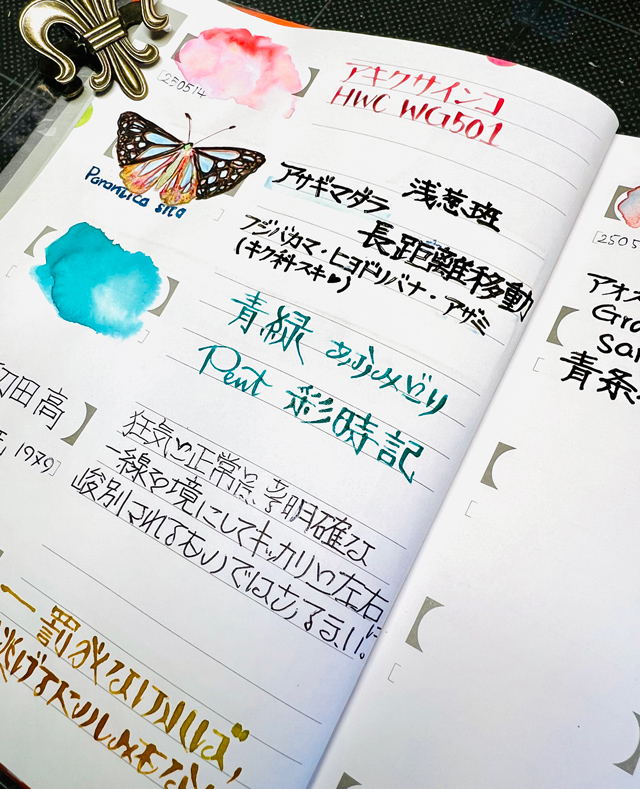 [250514
アキクサインコ
HWC WG501
Parantica sita
アサギマダラ 浅葱斑
長距離移動
フジバカマ・ヒヨドリバナ・アザミ
(キク科スキ♥)
青緑 あおみどり
Pent 彩時記
田高
1979]
狂気と正常は、明確な
一線を境にしてキッカリと左右に
峻別されるものではあるまい。
罰がなければ、
逃げる
[2505
アオ
Gra
sar
青条